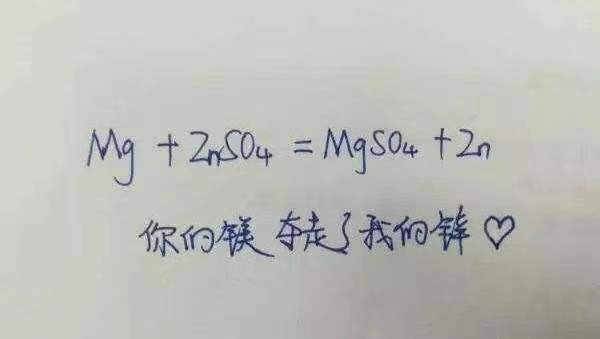 Mg + ZnSO₄ = MgSO₄ + Zn
你的镁夺走了我的锌♡